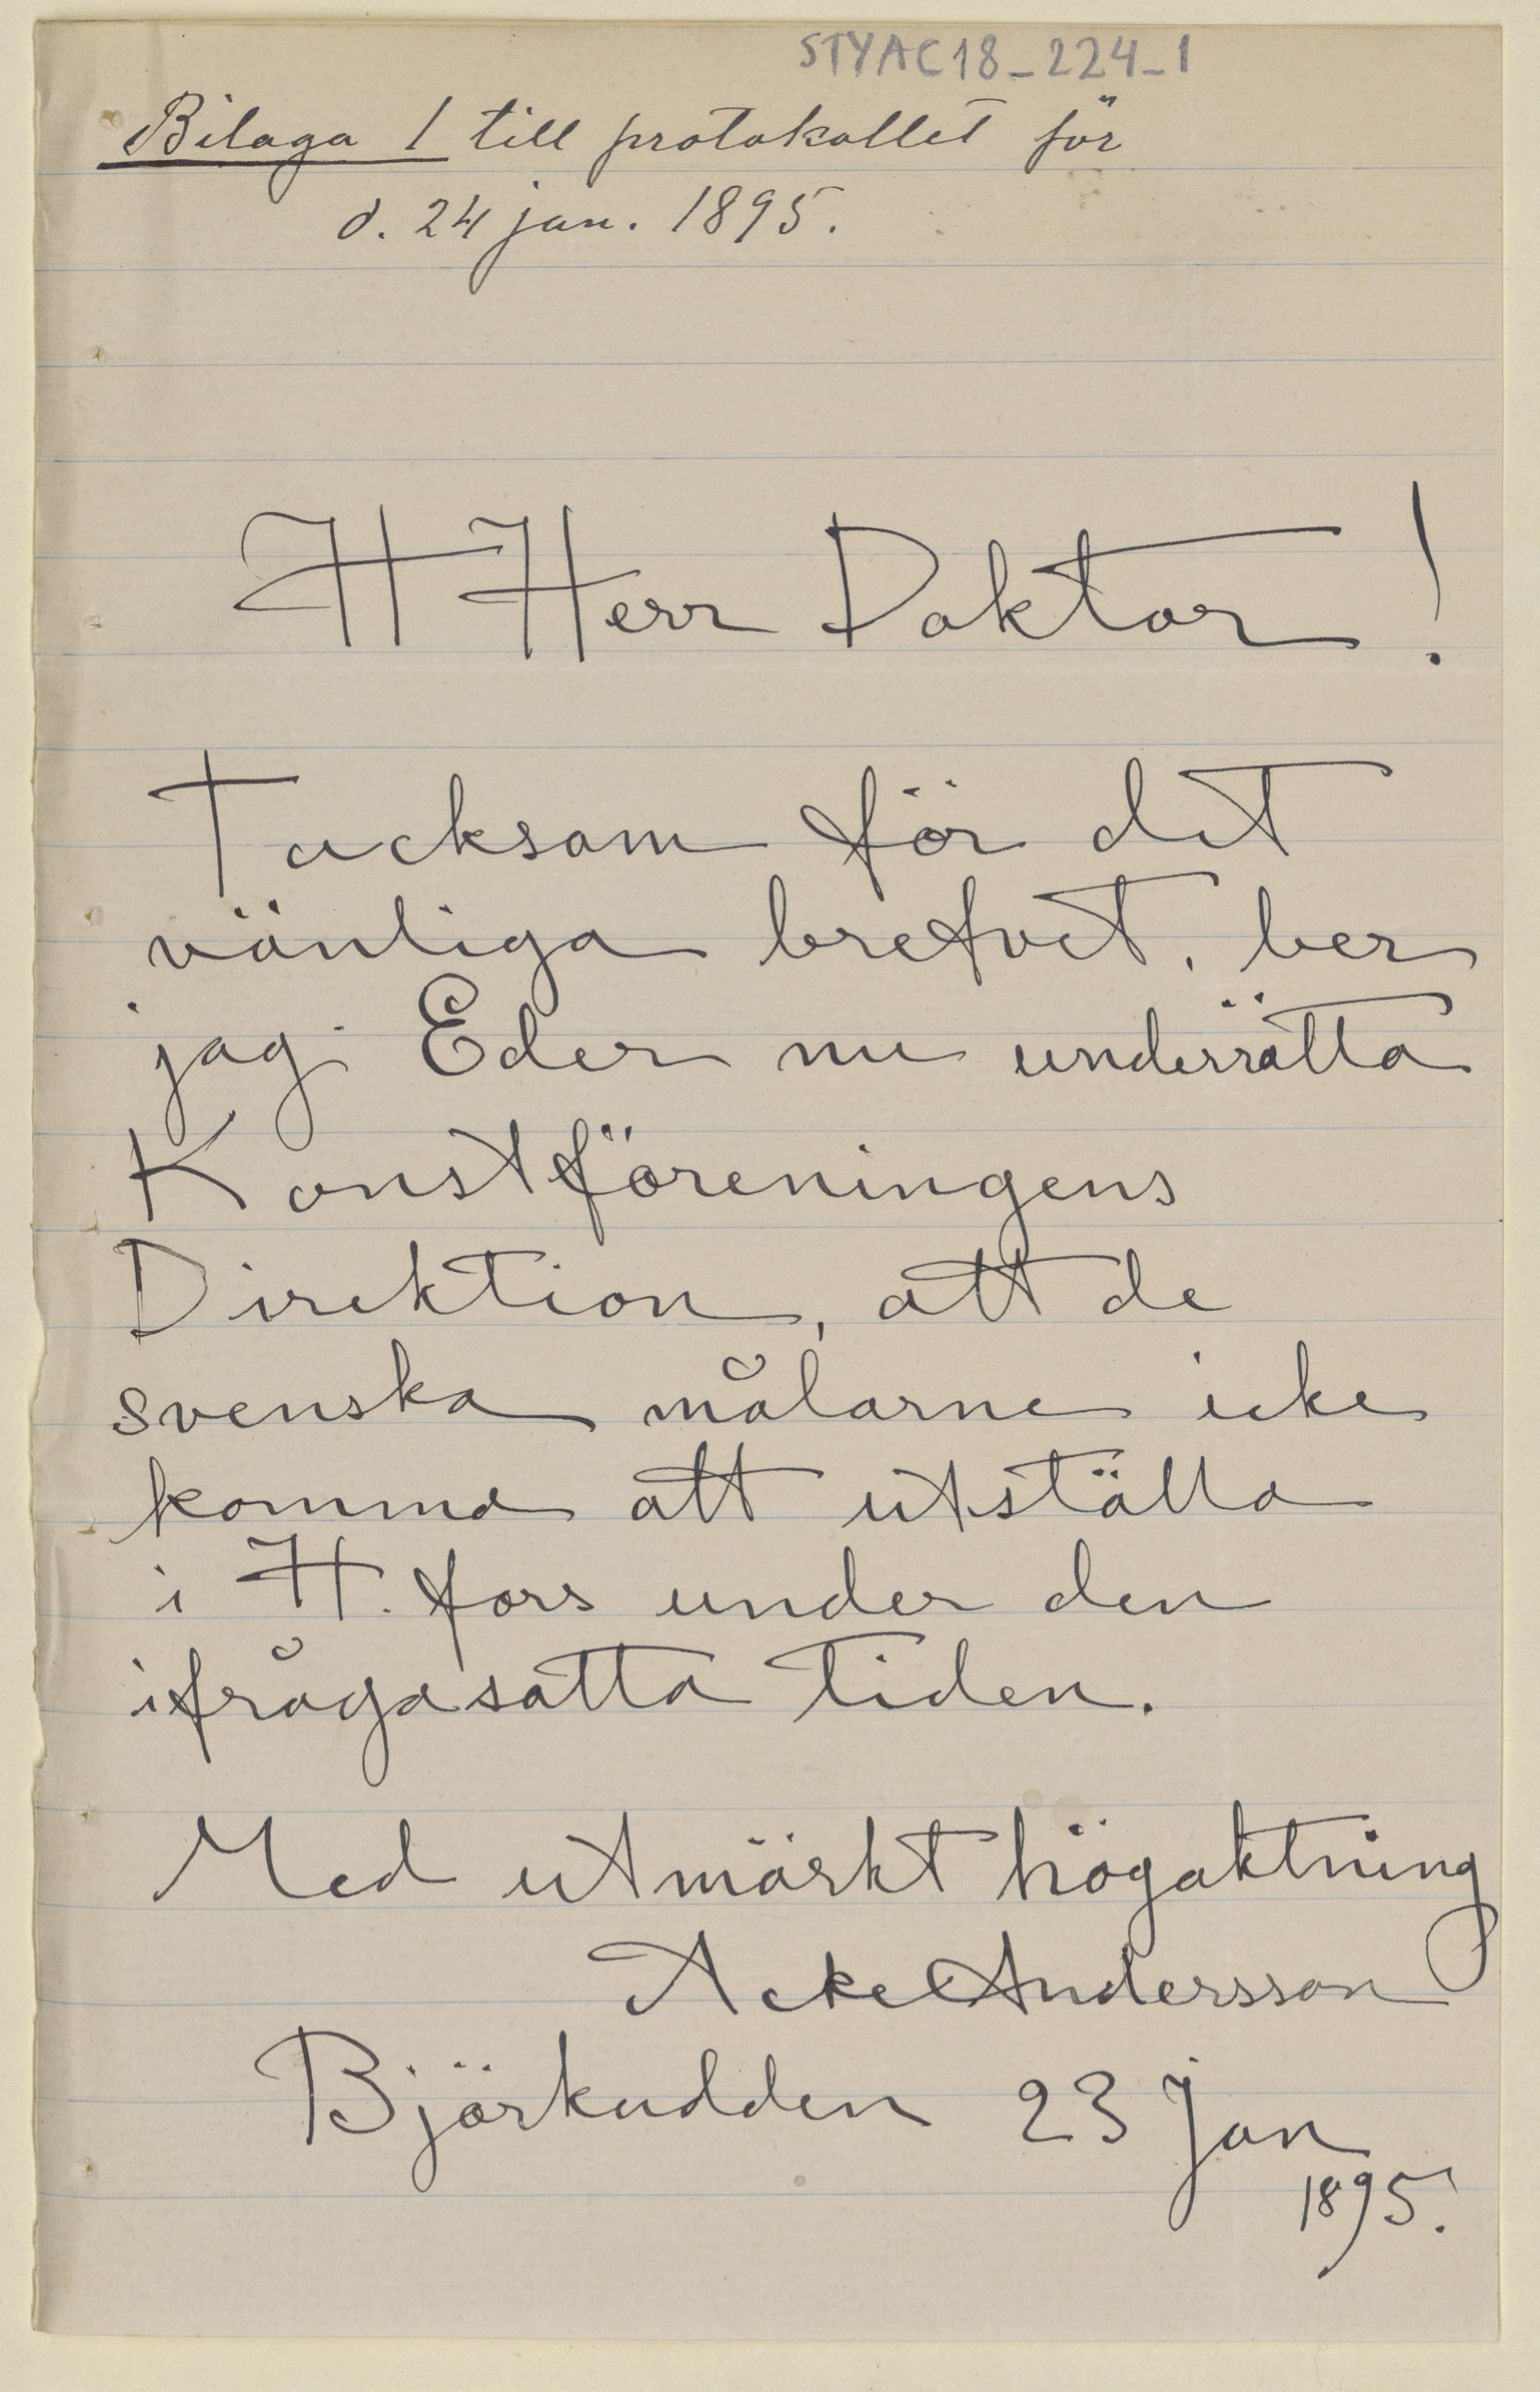 STYAC18_224_1
Bilaga 1 till protokollet för
d. 24 jan. 1895.
H Herr Doktor!
Tacksam för det
vänliga brefvet, ber
jag Eder nu underrätta
Konstföreningens
Direktion, att de
svenska målarne icke
komma att utställa
i H.fors under den
ifrågasatta tiden.
Med utmärkt högaktning
Acke Andersson
Björkudden 23 Jan
1895.